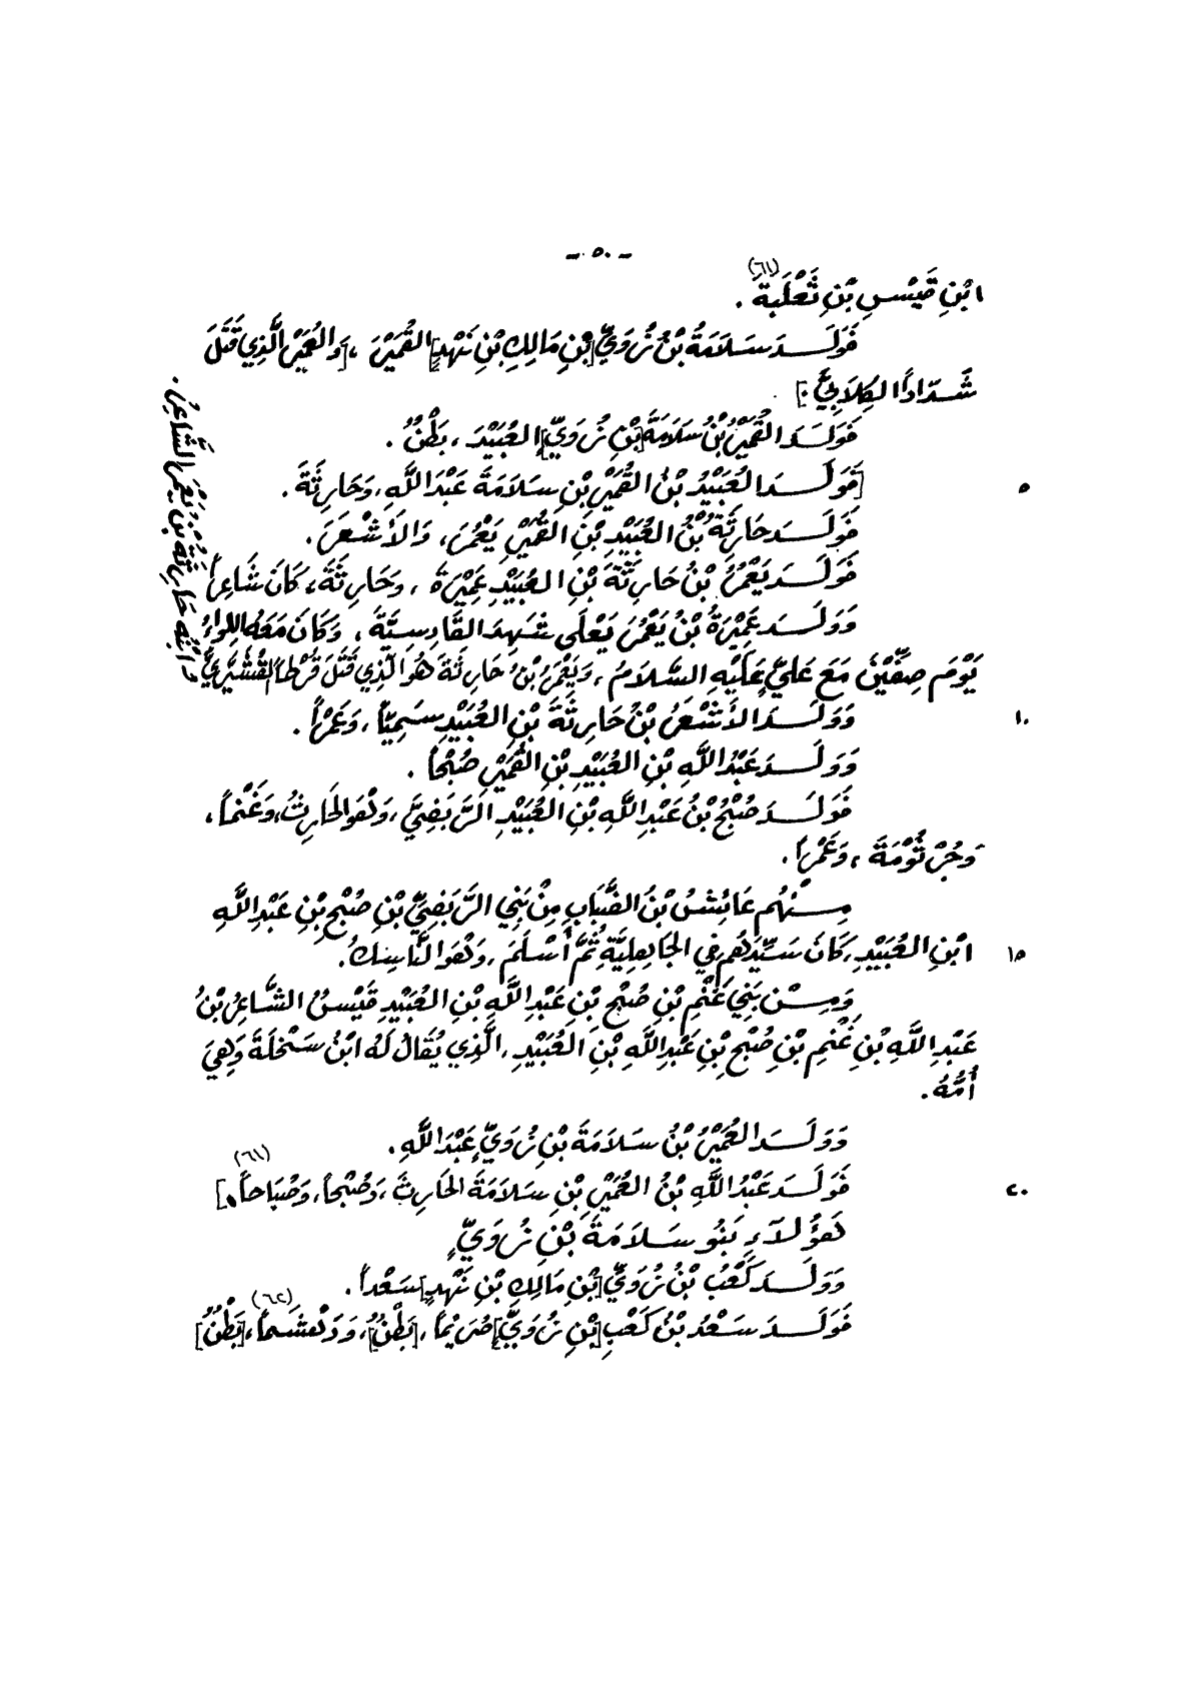 - ٥٠ -
ابْنِ قَيْسِ بْنِ ثَعْلَبَةَ (٦١) .
فَوَلَدَ سَلَامَةُ بْنُ زُوَيٍّ [بْنِ مَالِكِ بْنِ نَهْدٍ] القُمَيْرَ ، [وَالعُمَيْرَ الَّذِي قَتَلَ
شَدَّادًا الكِلَابِيَّ .]
فَوَلَدَ القُمَيْرُ بْنُ سَلَامَةَ [بْنِ زُوَيٍّ] العُبَيْدَ ، بَطْنٌ .
٥ [فَوَلَدَ العُبَيْدُ بْنُ القُمَيْرِ بْنِ سَلَامَةَ عَبْدَ اللَّهِ ، وَحَارِثَةَ .
فَوَلَدَ حَارِثَةُ بْنُ العُبَيْدِ بْنِ القُمَيْرِ يَعْمُرَ ، وَالأَشْعَرَ .
فَوَلَدَ يَعْمُرُ بْنُ حَارِثَةَ بْنِ العُبَيْدِ عَمِيْرَةَ ، وَحَارِثَةَ ، كَانَ شَاعِراً
وَابْنُهُ حَارِثَةُ بْنُ يَعْمُرَ الشَّاعِرُ .
وَوَلَدَ عَمِيْرَةُ بْنُ يَعْمُرَ يَعْلَى شَهِدَ القَادِسِيَّةَ ، وَكَانَ مَعَهُ اللِّوَاءُ
يَوْمَ صِفِّيْنَ مَعَ عَلِيٍّ عَلَيْهِ السَّلَامُ ، وَيَعْمُرُ بْنُ حَارِثَةَ هُوَ الَّذِي قَتَلَ قُرْطاً القُشَيْرِيَّ
١٠ وَوَلَدَ الأَشْعَرُ بْنُ حَارِثَةَ بْنِ العُبَيْدِ سَمِيّاً ، وَعَمْراً .
وَوَلَدَ عَبْدُ اللَّهِ بْنِ العُبَيْدِ بْنِ القُمَيْرِ صُبْحاً .
فَوَلَدَ صُبْحُ بْنُ عَبْدِ اللَّهِ بْنِ العُبَيْدِ الرَّبَضِيَّ ، وَهُوَ الحَارِثُ ، وَغَنْماً ،
وَجُرْثُوْمَةَ ، وَعَمْراً .
مِنْهُم عَائِشُ بْنُ الضَّبَابِ مِنْ بَنِي الرَّبَضِيِّ بْنِ صُبْحِ بْنِ عَبْدِ اللَّهِ
١٥ ابْنِ العُبَيْدِ ، كَانَ سَيِّدَهُم فِي الجَاهِلِيَّةِ ثُمَّ أَسْلَمَ ، وَهُوَ النَّاسِكُ .
وَمِنْ بَنِي غَنْمِ بْنِ صُبْحِ بْنِ عَبْدِ اللَّهِ بْنِ العُبَيْدِ قَيْسٌ الشَّاعِرُ بْنُ
عَبْدِ اللَّهِ بْنِ غَنْمِ بْنِ صُبْحِ بْنِ عَبْدِ اللَّهِ بْنِ العُبَيْدِ ، الَّذِي يُقَالُ لَهُ ابْنُ سَخْلَةَ وَهِيَ
أُمُّهُ .
وَوَلَدَ العُمَيْرُ بْنُ سَلَامَةَ بْنِ زُوَيٍّ عَبْدَ اللَّهِ .
٢٠ فَوَلَدَ عَبْدُ اللَّهِ بْنُ العُمَيْرِ بْنِ سَلَامَةَ الحَارِثَ ، وَصُبْحاً ، وَصُبَاحاً (٦١) .]
هَؤُلَاءِ بَنُو سَلَامَةَ بْنِ زُوَيٍّ
وَوَلَدَ كَعْبُ بْنُ زُوَيٍّ [بْنِ مَالِكِ بْنِ نَهْدٍ] سَعْداً .
فَوَلَدَ سَعْدُ بْنُ كَعْبِ [بْنِ زُوَيٍّ] صُرَيْماً ، [بَطْنٌ] ، وَدَهْشَماً (٦٢) ، [بَطْنٌ]